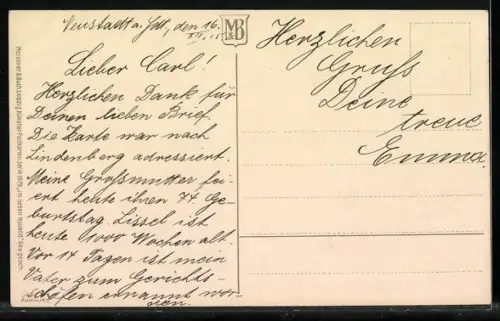 Neustadt a. Hdt., den 16.
M&B
Lieber Carl!
Herzlichen Dank für
Deinen lieben Brief.
Die Karte war nach
Lindenberg adressiert.
Meine Großmutter fei-
ert heute ihren 74. Ge-
burtstag. Lissel ist
heute 1000 Wochen alt.
Vor 14 Tagen ist mein
Vater zum Gerichts-
schöfen ernannt wor-
den.
Herzlichen
Gruss
Deine
treue
Emma.
Meissner & Buch, Leipzig, Künstler-Postkarten Serie